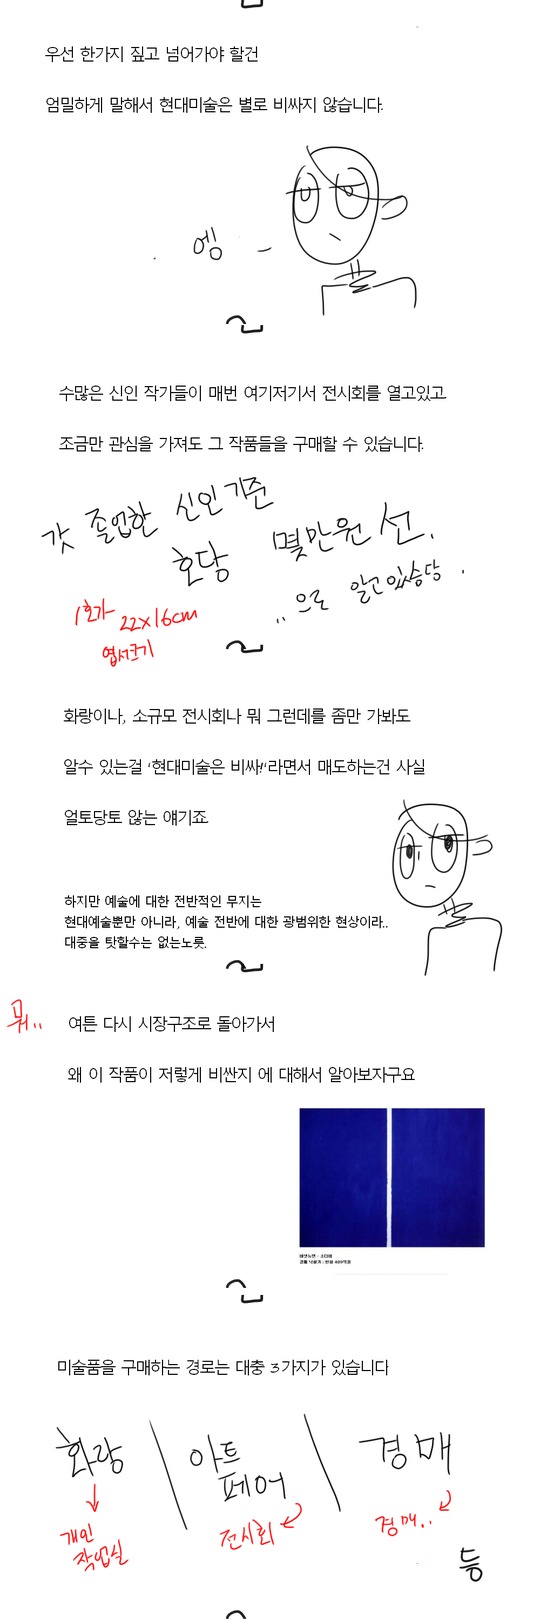 우선 한가지 짚고 넘어가야 할건
엄밀하게 말해서 현대미술은 별로 비싸지 않습니다.
엥
수많은 신인 작가들이 매번 여기저기서 전시회를 열고있고
조금만 관심을 가져도 그 작품들을 구매할 수 있습니다.
갓 졸업한 신인기준
호당 몇만원 선.
..으로 알고있승당.
1호가 22x16cm
엽서크기
화랑이나, 소규모 전시회나 뭐 그런데를 좀만 가봐도
알수 있는걸 '현대미술은 비싸!'라면서 매도하는건 사실
얼토당토 않는 얘기죠
하지만 예술에 대한 전반적인 무지는
현대예술뿐만 아니라, 예술 전반에 대한 광범위한 현상이라..
대중을 탓할수는 없는노릇.
뭐..
여튼 다시 시장구조로 돌아가서
왜 이 작품이 저렇게 비싼지 에 대해서 알아보자구요
미술품을 구매하는 경로는 대충 3가지가 있습니다
화랑 / 아트페어 / 경매
개인 작업실
전시회
경매..
등